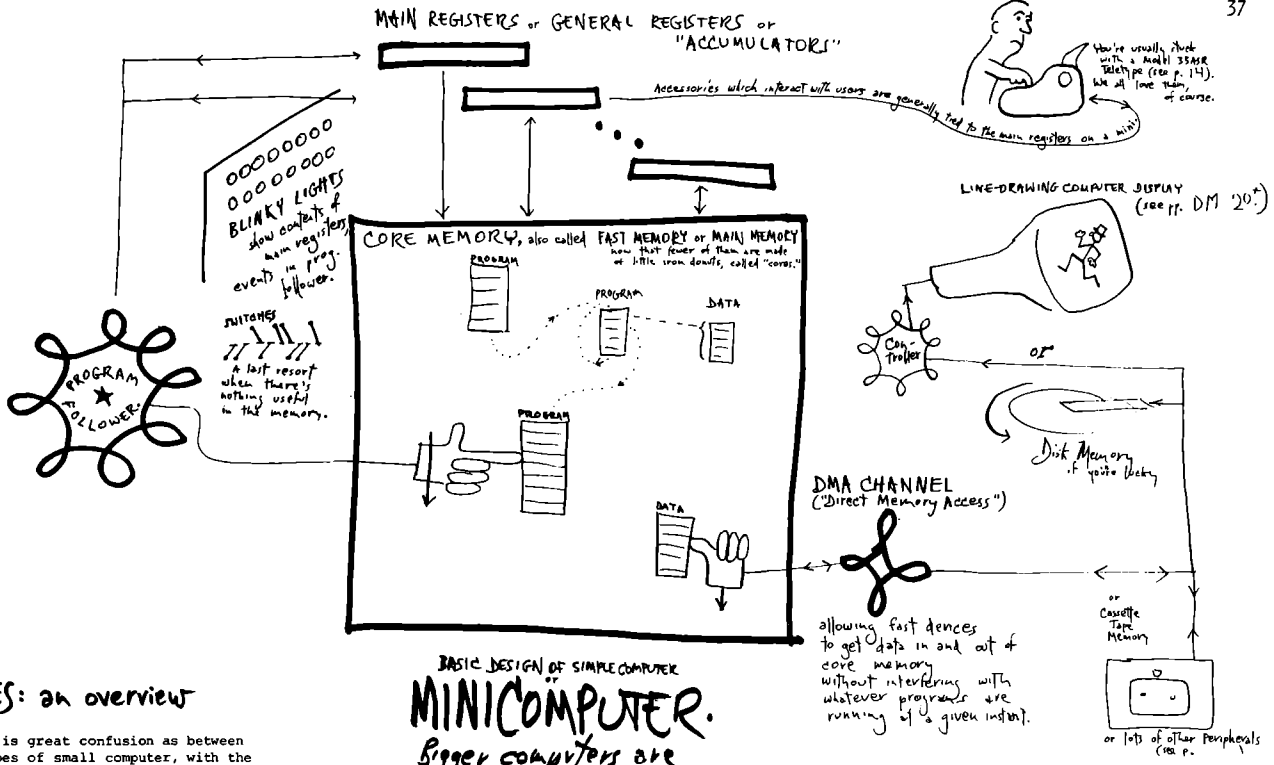 37
MAIN REGISTERS or GENERAL REGISTERS or
"ACCUMULATORS"
You're usually stuck
with a Model 35ASR
Teletype (see p. 14).
We all love them,
of course.
Accessories which interact with users are generally tied to the main registers on a mini.
BLINKY LIGHTS
show contents of
main registers,
events in prog.
follower.
SWITCHES
A last resort
when there's
nothing useful
in the memory.
PROGRAM
FOLLOWER.
CORE MEMORY, also called FAST MEMORY or MAIN MEMORY
now that fewer of them are made
of little iron donuts, called "cores."
PROGRAM
PROGRAM
DATA
PROGRAM
DATA
LINE-DRAWING COMPUTER DISPLAY
(see pp. DM
Con-
troller
or
Disk Memory
if you're lucky
DMA CHANNEL
("Direct Memory Access")
allowing fast devices
to get data in and out of
core memory
without interfering with
whatever programs are
running at a given instant.
or
Cassette
Tape
Memory
or lots of other peripherals
(see p.
BASIC DESIGN OF SIMPLE COMPUTER
or
MINICOMPUTER.
Bigger computers are
: an overview
is great confusion as between
of small computer, with the